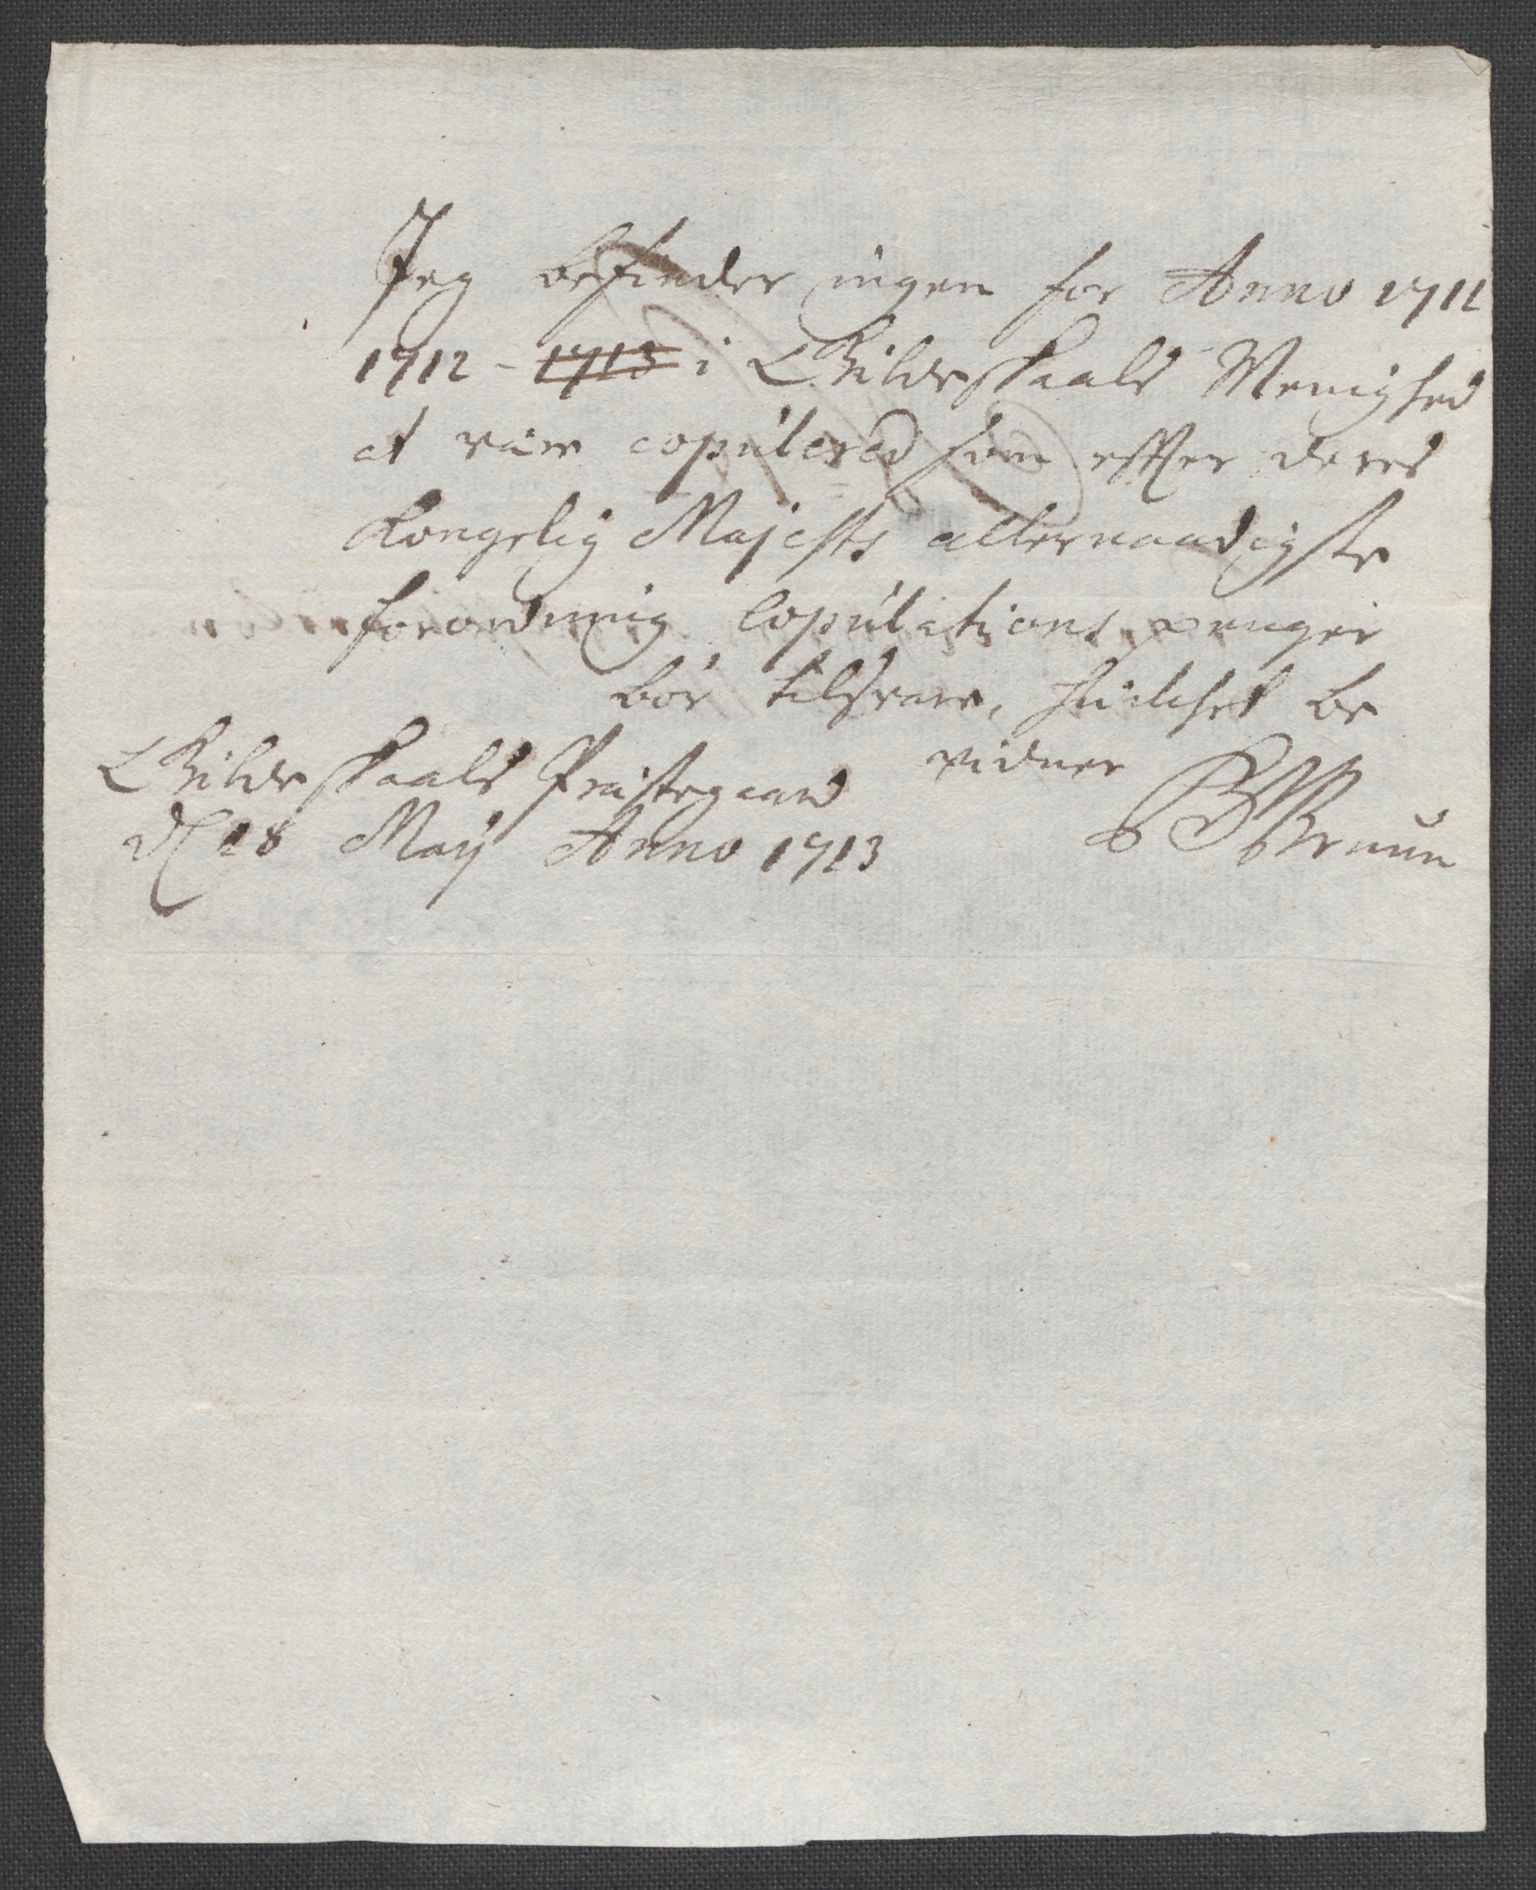 Jeg befinder ingen for Anno 1711
1712 - 1713 i Gildeskaals Menighed
at være copulered som effter deres
Kongelig Majests allernaadigste
forordning Copulations penger
bör tilsvare, huilchet be
vidner
Gildeskaals Præstegaard
d 28 Maij Anno 1713
Bruun